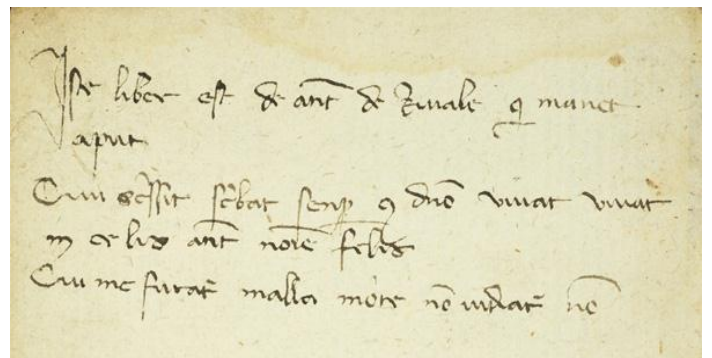 Iste liber est de ant de Riuale q manet
aput
Cui scssit scbat senp q dno viuat viuat
in celis ant noie felis
Cui me furat malla mote no uidat no